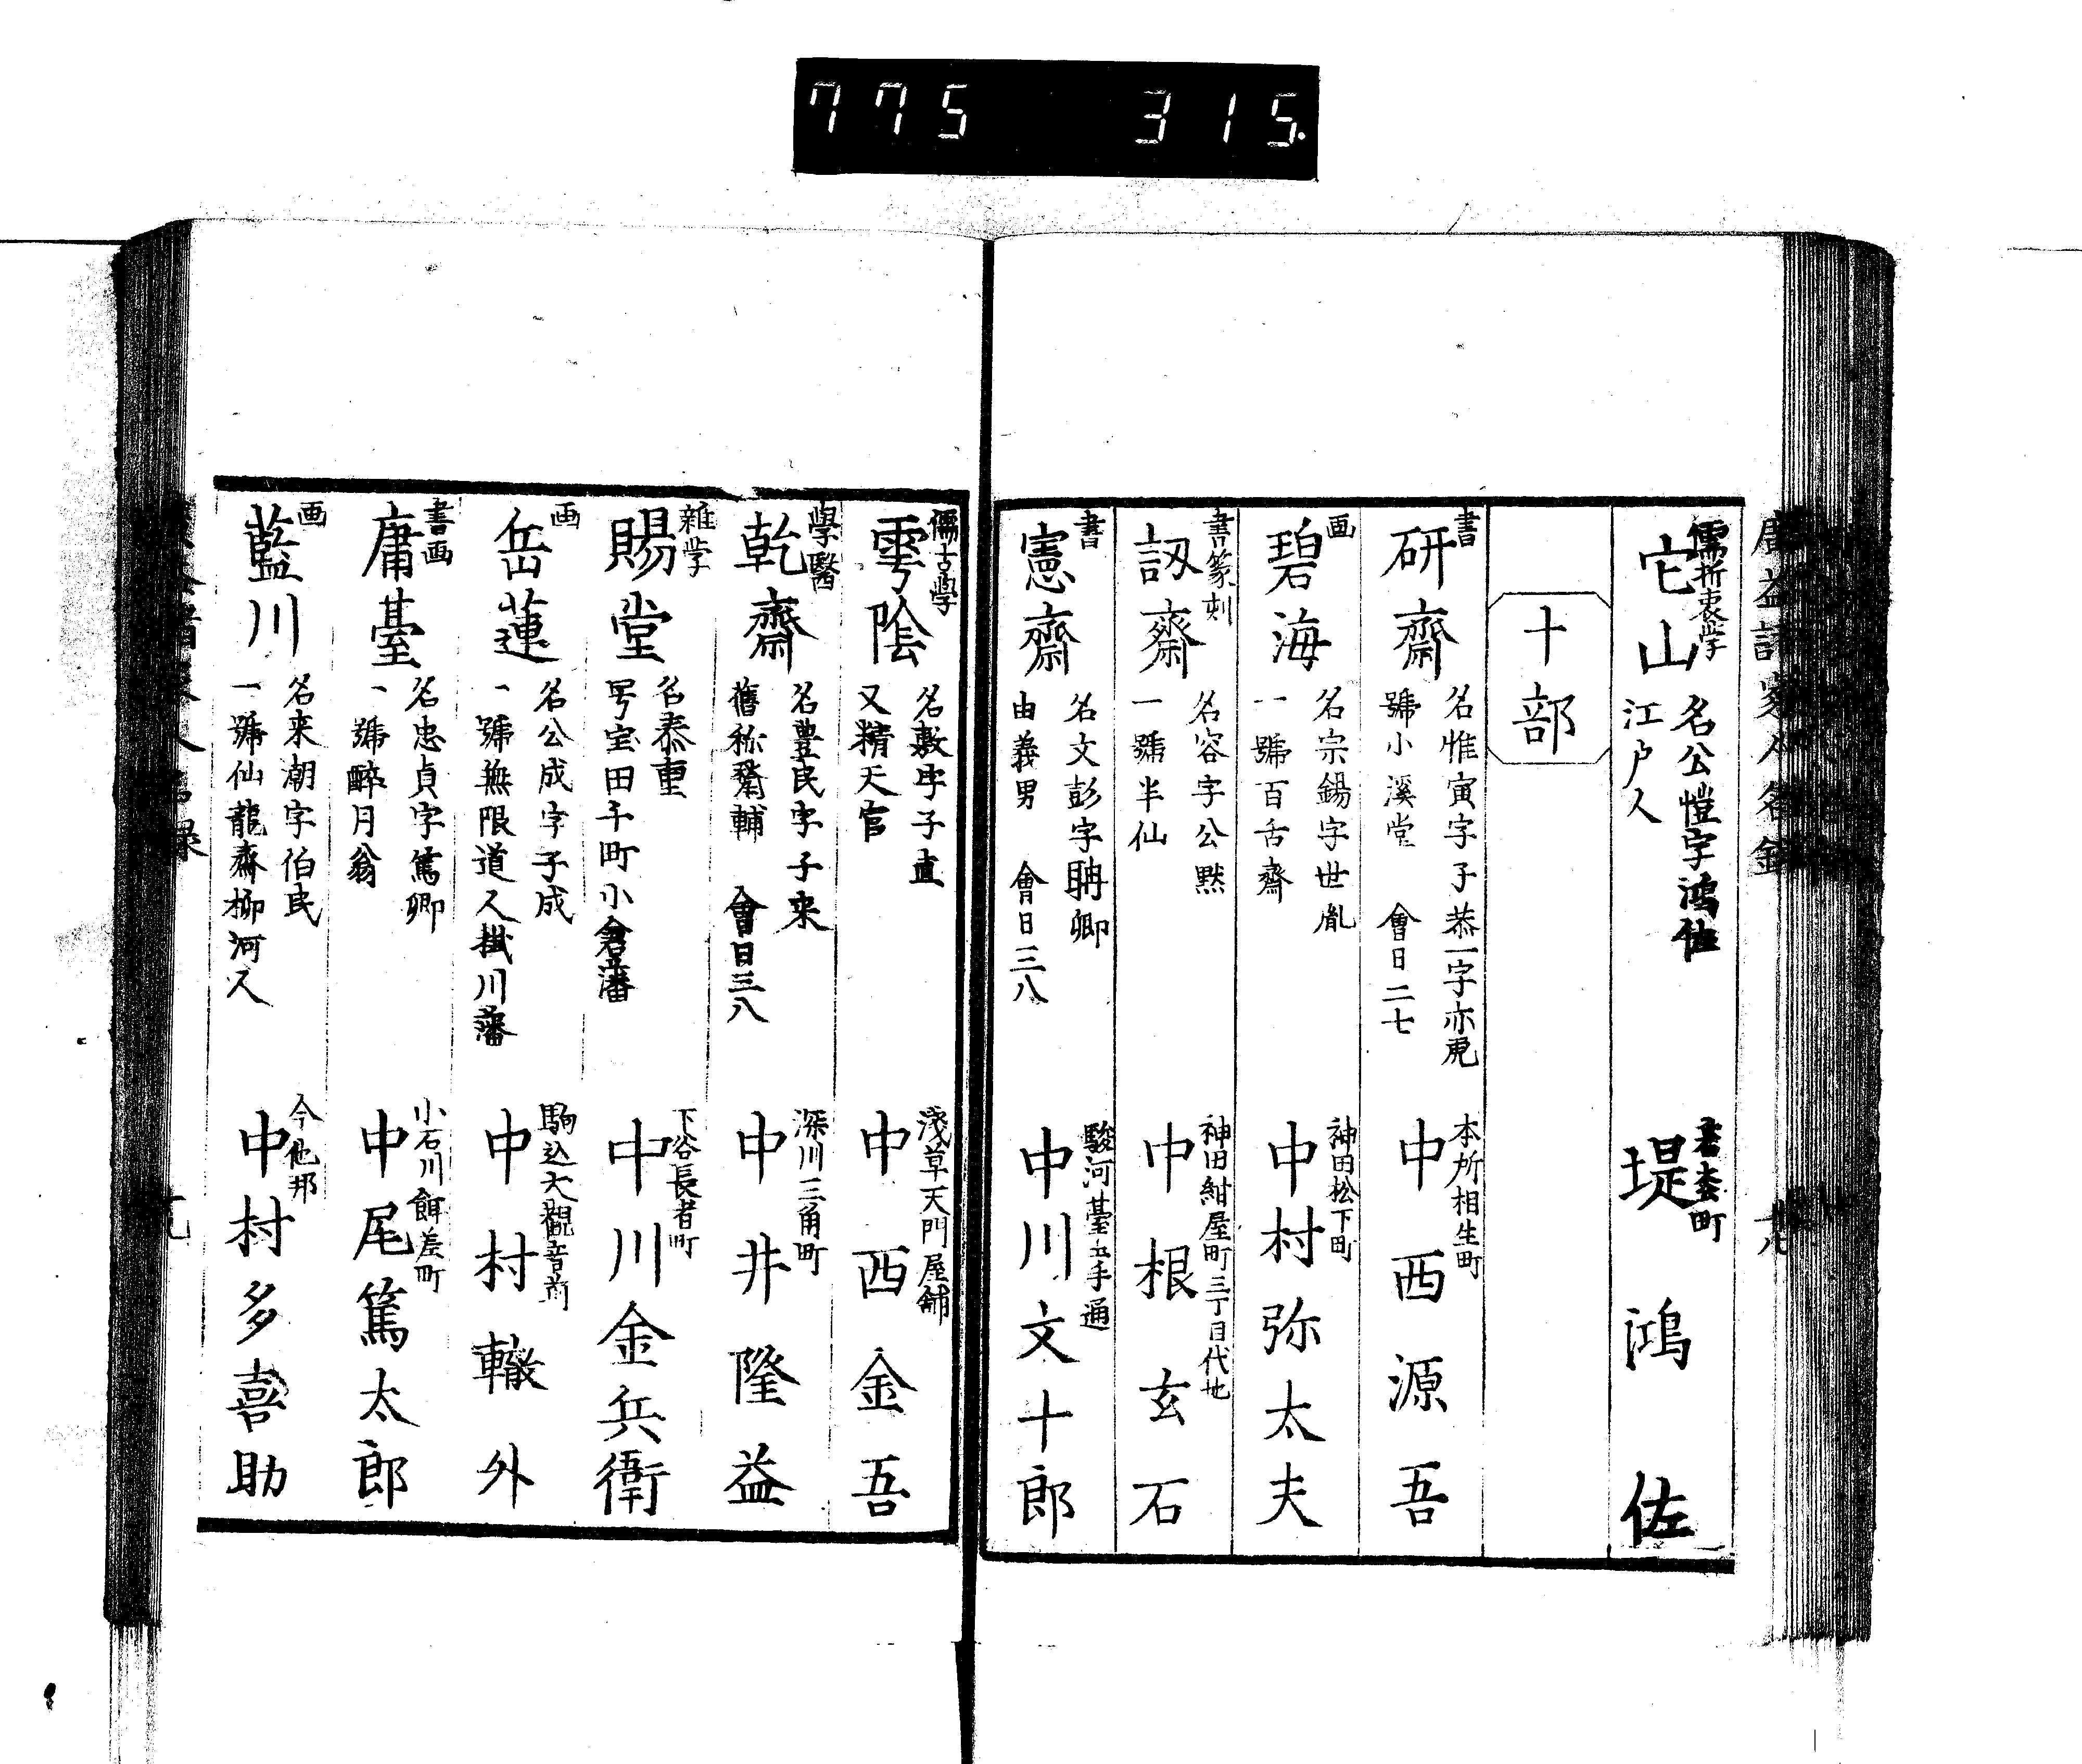 775 315.
廣益諸家人名録
儒折衷学
它山
名公愷字鴻佐
江戸人
堤鴻佐
十部
書
研齋
名惟寅字子恭一字亦虎
號小溪堂 會日二七
本所相生町
中西源吾
画
碧海
名宗鍚字世胤
一號百舌齋
神田松下町
中村弥太夫
書篆刻
訒齋
名容字公黙
一號半仙
神田紺屋町三丁目代地
中根玄石
書
憲齋
名文彭字聃卿
由義男 會日三八
駿河臺
中川文十郎
儒古學
雩陰
名敷字子直
又精天官
淺草天門屋舗
中西金吾
學醫
乾齋
名豊民字子来
舊称 輔 會日三八
深川三角町
中井隆益
雜学
賜堂
名泰重
号宝田千町小倉藩
下谷長者町
中川金兵衛
画
岳蓮
名公成字子成
一號無限道人掛川藩
駒込大觀音前
中村轍外
書画
庸臺
名忠貞字篤卿
一號醉月翁
小石川餌差町
中尾篤太郎
画
藍川
名来潮字伯民
一號仙龍齋柳河人
今他邦
中村多喜助